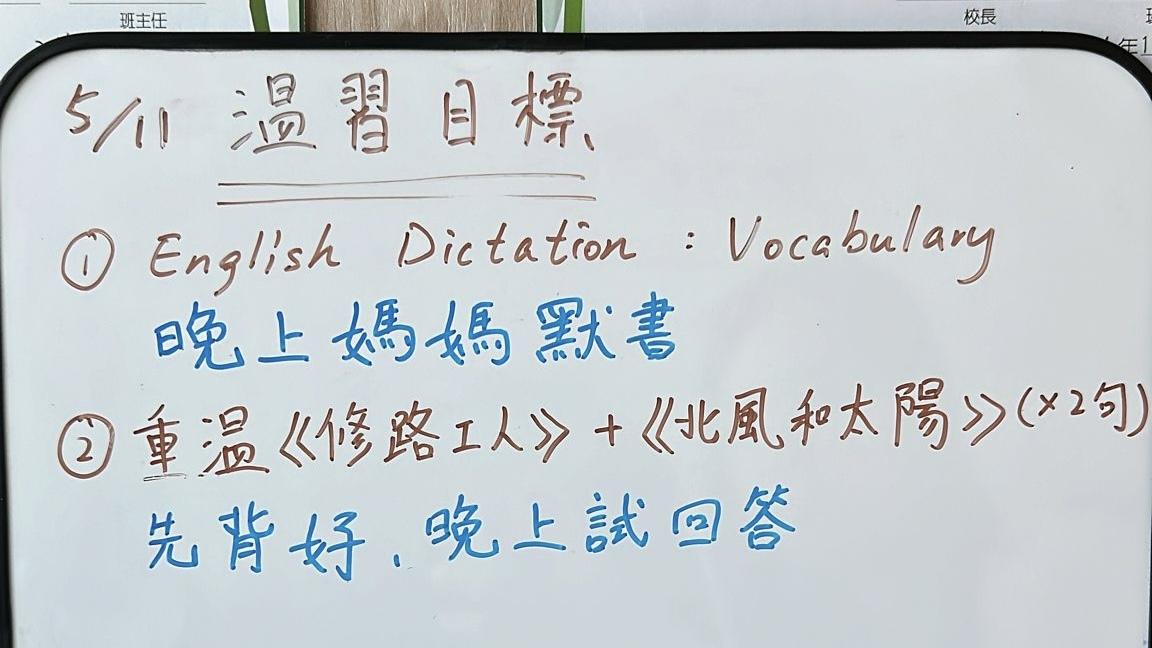 班主任
校長
5/11 溫習目標
① English Dictation : Vocabulary
晚上媽媽默書
② 重溫《修路工人》+《北風和太陽》(×2句)
先背好、晚上試回答